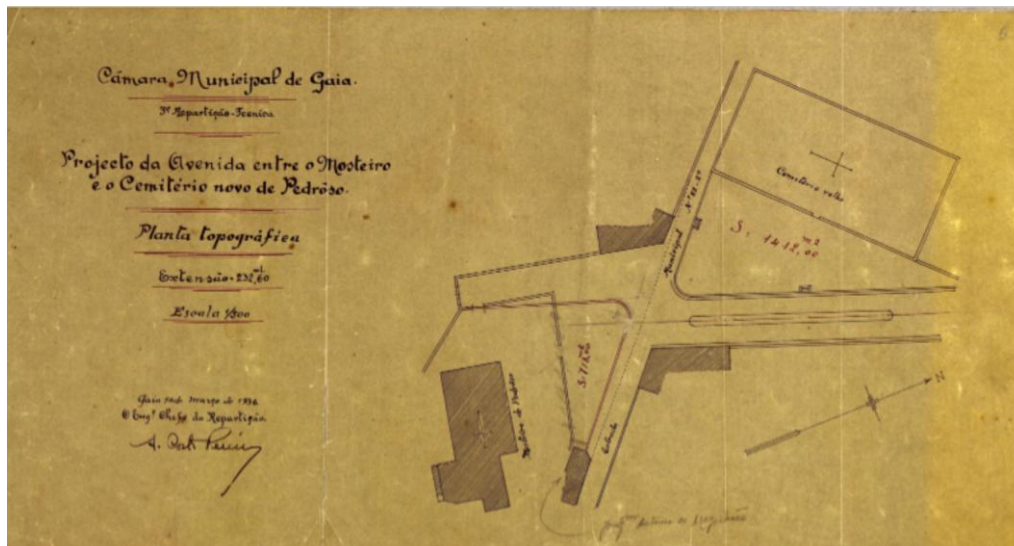 Câmara Municipal de Gaia.
3ª Repartição-Tecnica
Projecto da Avenida entre o Mosteiro
e o Cemitério novo de Pedrôso.
Planta topográfica
Extensão-232,60
Escala 1/500
Gaia março de
O Engº Chefe da Repartição
A.
Cemitério velho
S. 1412,00 m2
Nº
Municipal
Estrada
Mosteiro de Pedroso
N